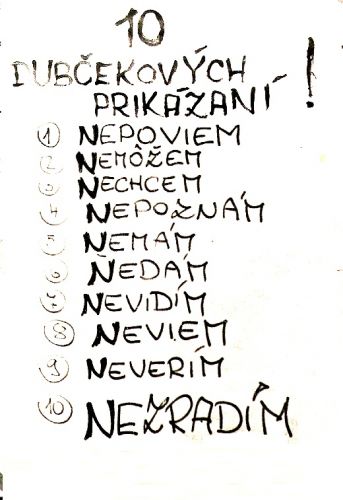 10
DUBČEKOVÝCH
PRIKÁZANÍ !
1 NEPOVIEM
2 NEMÔŽEM
3 NECHCEM
4 NEPOZNÁM
5 NEMÁM
6 NEDÁM
7 NEVIDÍM
8 NEVIEM
9 NEVERÍM
10 NEZRADÍM